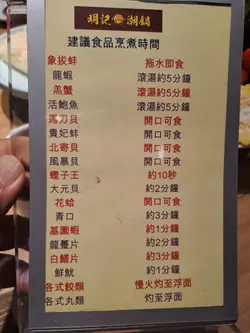 明記 湘鍋
建議食品烹煮時間
象拔蚌 拖水即食
龍蝦 滾湯約5分鐘
羔蟹 滾湯約5分鐘
活鮑魚 滾湯約5分鐘
馬刀貝 開口可食
貴妃蚌 開口可食
北寄貝 開口可食
風暴貝 開口可食
蟶子王 約10秒
大元貝 約2分鐘
花蛤 開口可食
青口 約3分鐘
基圍蝦 約1分鐘
龍躉片 約2分鐘
白鱔片 約3分鐘
鮮魷 約1分鐘
各式餃類 慢火灼至浮面
各式丸類 灼至浮面